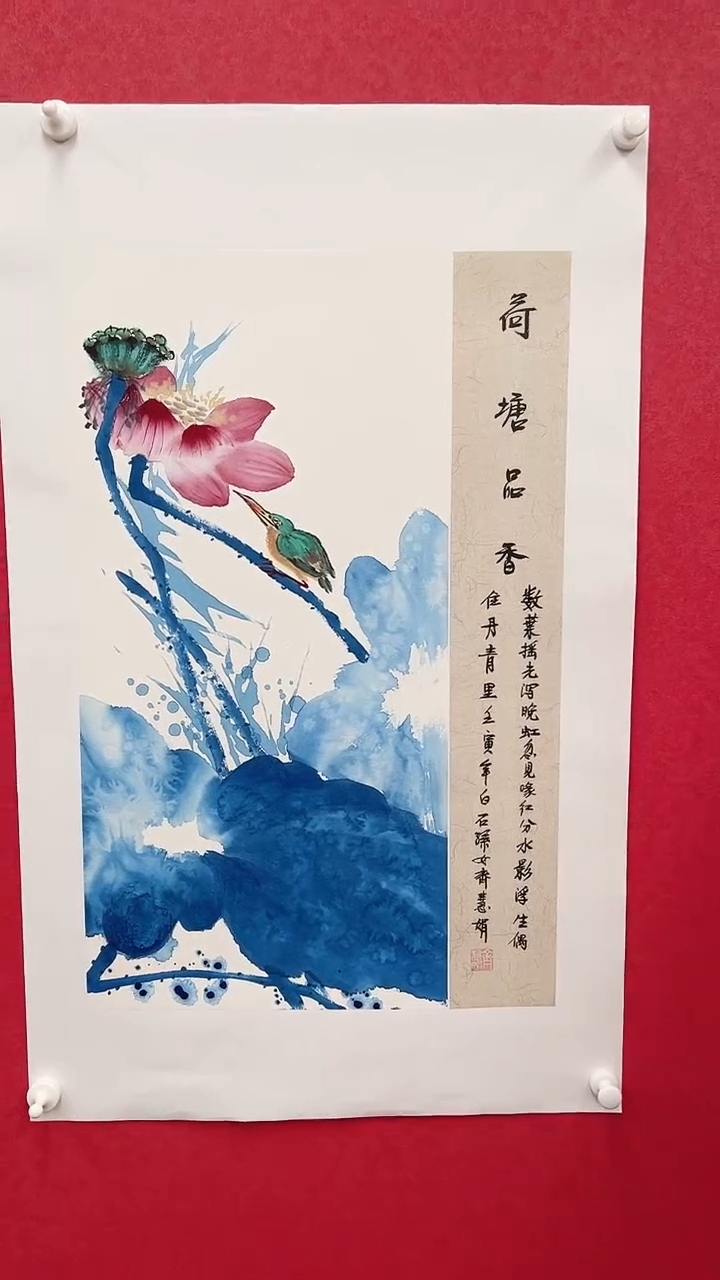 荷塘品香
数葉摇光泻晚虹忽見喙红分水影浮生偶
住丹青里壬寅年白石孫女齊慧娟